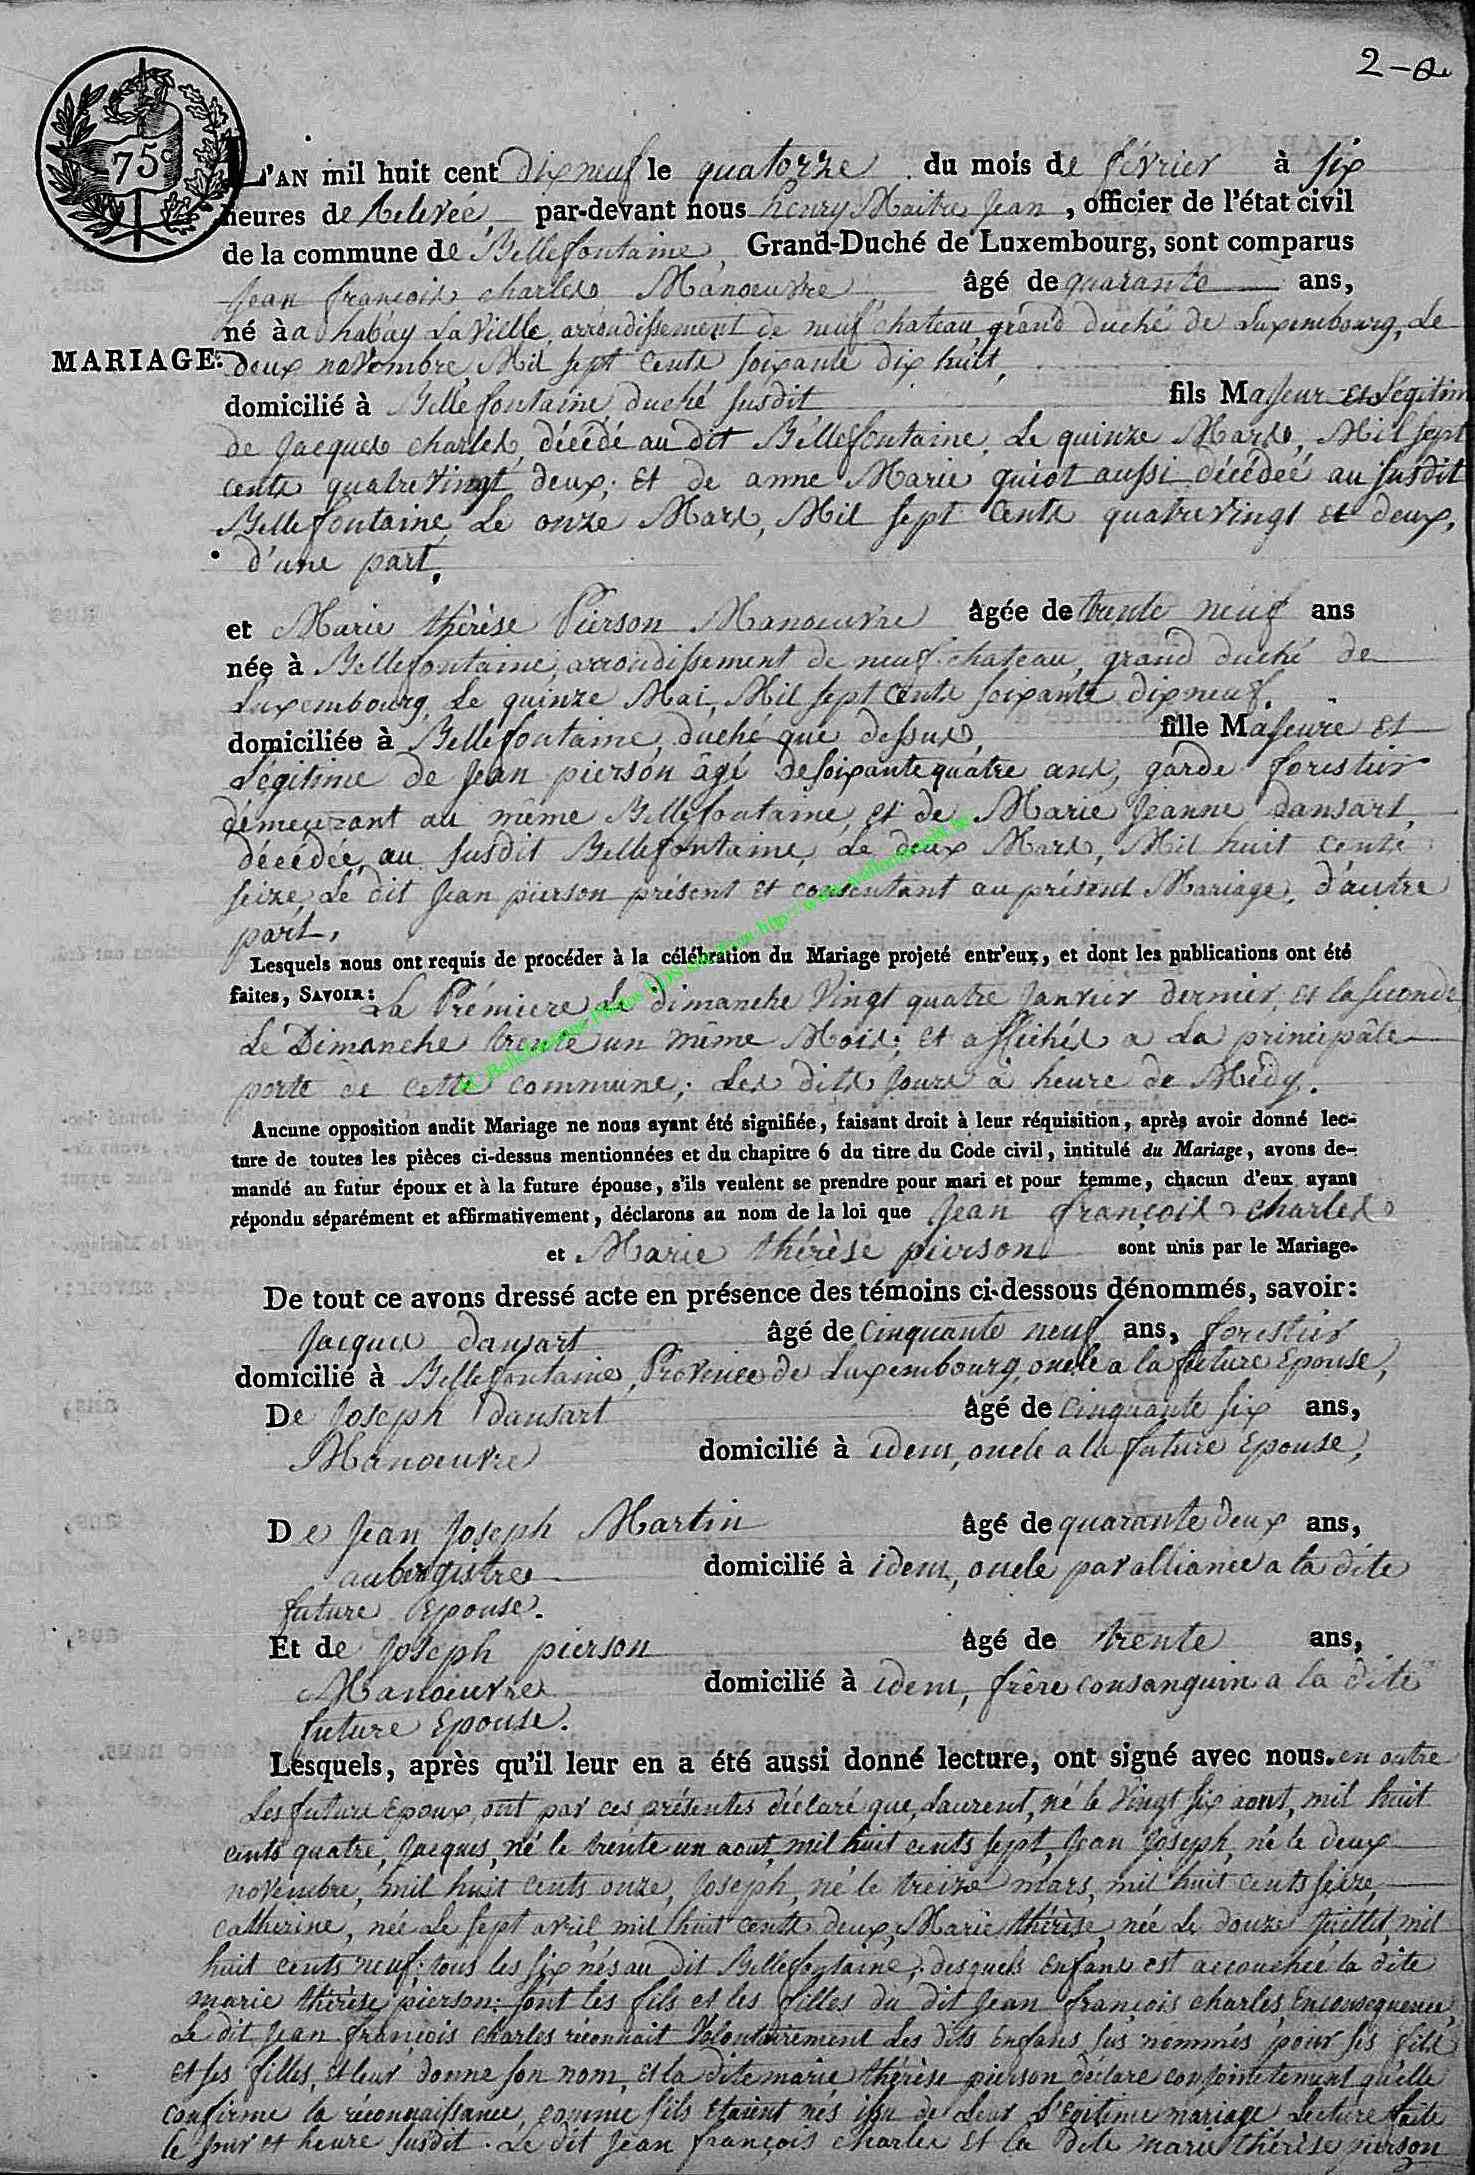 2-
75c
L'AN mil huit cent dix neuf le quatorze du mois de février à six
heures de Relevée, par-devant nous henry Maitre Jean, officier de l'état civil
de la commune de Bellefontaine, Grand-Duché de Luxembourg, sont comparus
Jean françois charles Manoeuvre âgé de quarante ans,
né à a habay La Ville, arrondissement de neufchateau, grand duché de Luxembourg, Le
MARIAGE. deux novembre, Mil sept cents soixante dix huit,
domicilié à Bellefontaine, duché susdit fils Majeur et Légitim
de Jacques charles, décédé au dit Bellefontaine, Le quinze Mars, Mil sept
cents quatre vingt deux; et de anne Marie quiot aussi décédée au susdit
Bellefontaine, Le onze Mars, Mil sept cents quatre vingt et deux,
d'une part.
et Marie thérèse Pierson Manoeuvre âgée de trente neuf ans
née à Bellefontaine, arrondissement de neufchateau, grand duché de
Luxembourg, Le quinze Mai, Mil sept cents soixante dix neuf.
domiciliée à Bellefontaine, duché que dessus, fille Majeure et
Légitime de Jean pierson âgé de soixante quatre ans, garde forestier
demeurant au même Bellefontaine, et de Marie Jeanne dansart,
décédée, au susdit Bellefontaine, Le deux Mars, Mil huit cents
seize, Le dit Jean pierson présent et consentant au présent Mariage, d'autre
part,
Lesquels nous ont requis de procéder à la célébration du Mariage projeté entr'eux, et dont les publications ont été
faites, SAVOIR: La Prémiere Le dimanche Vingt quatre Janvier dernier et la seconde
Le Dimanche trente un même Mois; et affichés a La principâle
porte de cette commune; Les dits Jours à heure de Midy.
Aucune opposition audit Mariage ne nous ayant été signifiée, faisant droit à leur réquisition, après avoir donné lec-
ture de toutes les pièces ci-dessus mentionnées et du chapitre 6 du titre du Code civil, intitulé du Mariage, avons de-
mandé au futur époux et à la future épouse, s'ils veulent se prendre pour mari et pour femme, chacun d'eux ayant
répondu séparément et affirmativement, déclarons au nom de la loi que Jean françois charles
et Marie thérèse pierson sont unis par le Mariage.
De tout ce avons dressé acte en présence des témoins ci-dessous dénommés, savoir:
Jacques dansart âgé de cinquante neuf ans, forestier
domicilié à Bellefontaine, Province de Luxembourg, oncle a la future Epouse,
De Joseph dansart âgé de cinquante six ans,
Manoeuvre domicilié à idem, oncle a la future Epouse,
De Jean Joseph Martin âgé de quarante deux ans,
aubergistre domicilié à idem, oncle par alliance a la dite
future Epouse.
Et de Joseph pierson âgé de trente ans,
Manoeuvre domicilié à idem, frère consanguin a la dite
future Epouse.
Lesquels, après qu'il leur en a été aussi donné lecture, ont signé avec nous. en outre
Les futurs Epoux, ont par ces présentes déclaré que, Laurent, né le Vingt six aout, mil huit
cents quatre, Jacques, né le trente un aout, mil huit cents sept, Jean Joseph, né le deux
novembre, mil huit cents onze, Joseph, né le treize mars, mil huit cents seize,
catherine, née Le sept avril mil huit cents deux, Marie thérèse, née Le douze Juillet, mil
huit cents neuf; tous les six nés au dit Bellefontaine; desquels Enfans est accouchée la dite
marie thérèse pierson: sont les fils et les filles du dit Jean françois charles, En consequence
Le dit Jean françois charles réconnait Volontairement Les dits Enfans sus nommés pour ses fils
et ses filles, et leur donne son nom, et la dite marie thérèse pierson déclare conjointement qu'elle
confirme la réconnaissance, comme s'ils Etaient nés issu de Leur Légitime mariage Lecture faite
le Jour et heure susdit. Le dit Jean françois charles et la dite marie thérèse pierson